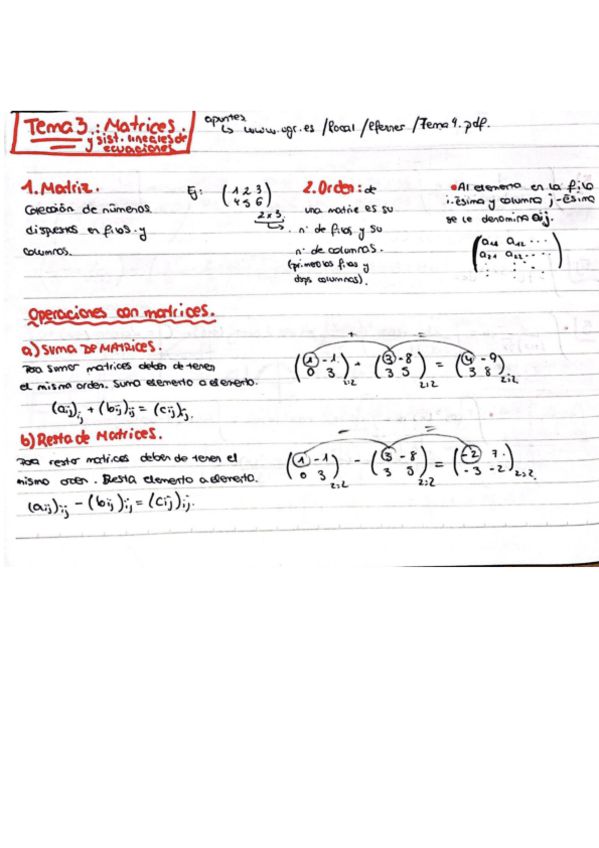 Tema 3.: Matrices.
y sist. lineales de
ecuaciones
apuntes
↳ www.ugr.es/local/eferrer/Tema 9.pdf.
1. Matriz.
Colección de números
dispuestos en filas y
columnas.
Ej: (1 2 3
4 5 6)
2x3.
2. Orden: de
una matriz es su
n° de filas y su
n° de columnas.
(primero las filas y
dsps columnas).
• Al elemento en la fila
i-ésima y columna j-ésima
se le denomina aij.
(a11 a12 ...
a21 a22 ...
⋮ ⋮ ⋮)
Operaciones con matrices.
a) SUMA DE MATRICES.
Para sumar matrices deben de tener
el mismo orden. Suma elemento a elemento.
(aij)ij + (bij)ij = (cij)ij.
+ =
(1 -1
0 3)2x2 + (3 -8
3 5)2x2 = (4 -9
3 8)2x2
b) Resta de Matrices.
Para restar matrices deben de tener el
mismo orden. Resta elemento a elemento.
(aij)ij - (bij)ij = (cij)ij.
- =
(1 -1
0 3)2x2 - (3 -8
3 5)2x2 = (-2 7.
-3 -2)2x2.